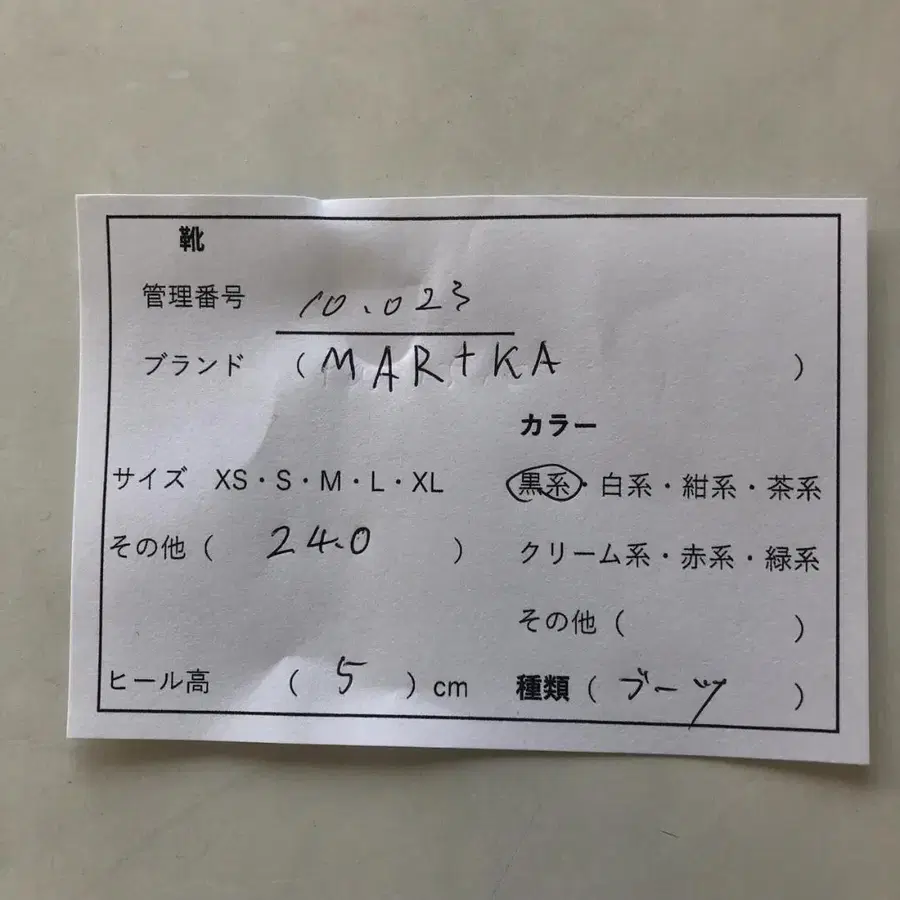 靴
管理番号 10.023
ブランド (MAR+KA)
カラー
サイズ XS・S・M・L・XL 黒系・白系・紺系・茶系
その他 ( 24.0 ) クリーム系・赤系・緑系
その他 ( )
ヒール高 ( 5 ) cm 種類 ( ブーツ )